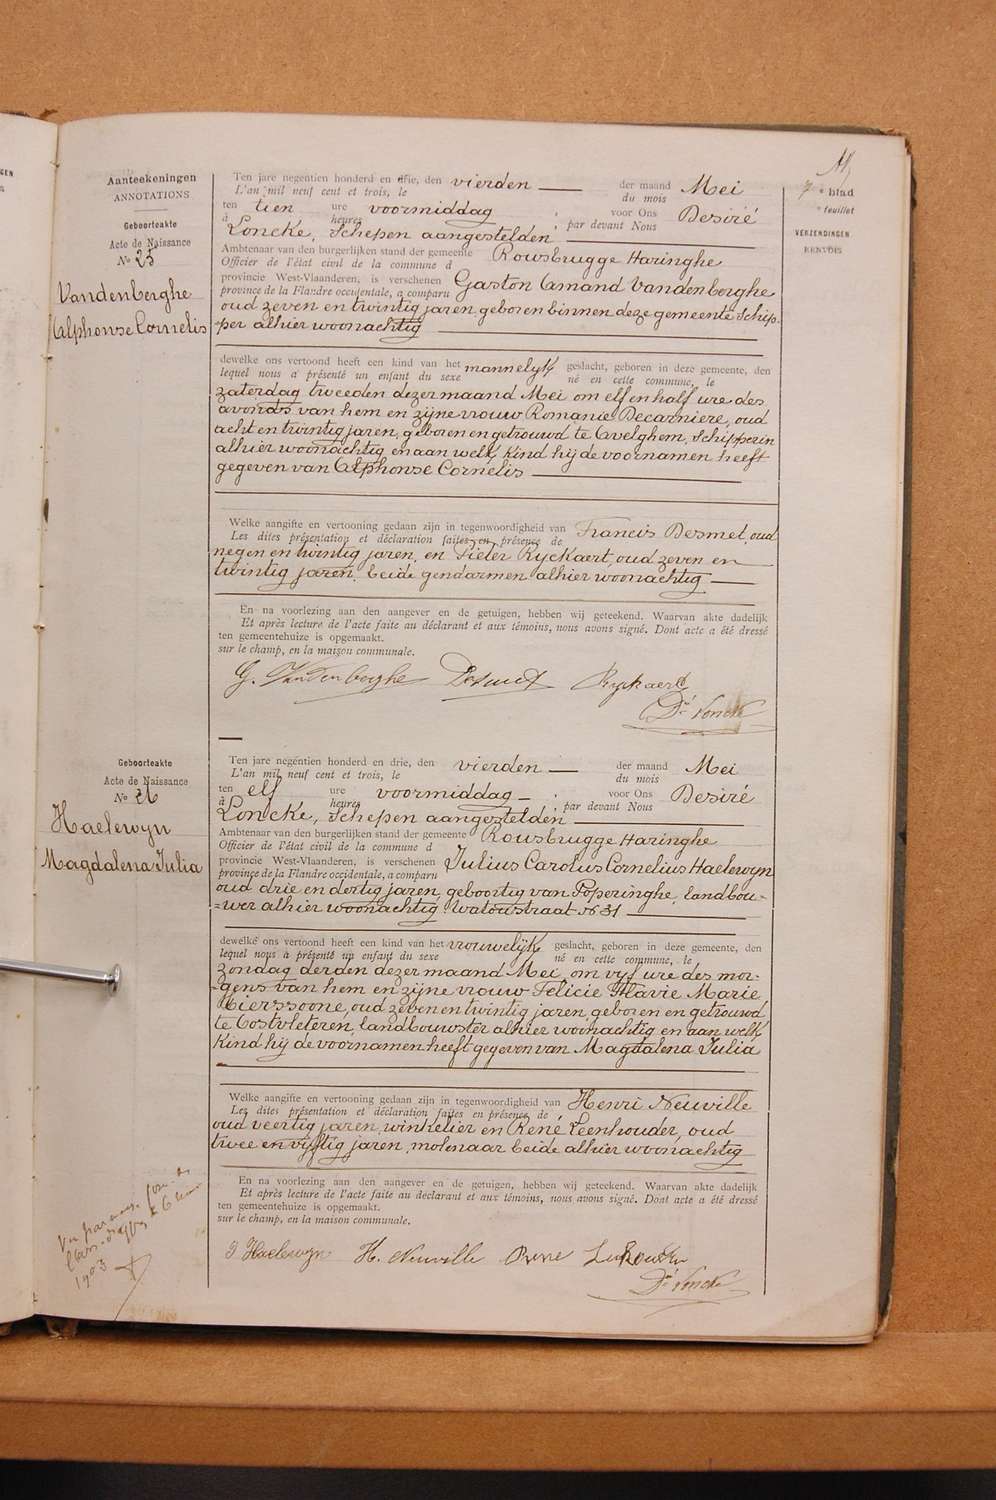 Aanteekeningen
ANNOTATIONS
Geboorteakte
Acte de Naissance
No 25
Vandenberghe
Alphonse Cornelis
Ten jare negentien honderd en drie, den vierden — der maand Mei
L'an mil neuf cent et trois, le du mois
ten tien ure voormiddag , voor Ons Desiré
à heures , par devant Nous
Loncke, Schepen aangestelden,
Ambtenaar van den burgerlijken stand der gemeente Rousbrugge Haringhe
Officier de l'état civil de la commune d
provincie West-Vlaanderen, is verschenen Gaston Amand Vandenberghe
province de la Flandre occidentale, a comparu
oud zeven en twintig jaren, geboren binnen deze gemeente Schip-
-per alhier woonachtig
dewelke ons vertoond heeft een kind van het mannelyk geslacht, geboren in deze gemeente, den
lequel nous a présenté un enfant du sexe né en cette commune, le
zaterdag tweeden dezer maand Mei om elf en half ure des
avonds van hem en zijne vrouw Romanie Decarniere, oud
acht en twintig jaren, geboren en getrouwd te Avelghem, Schipperin
alhier woonachtig en aan welk kind hij de voornamen heeft
gegeven van Alphonse Cornelis
Welke aangifte en vertooning gedaan zijn in tegenwoordigheid van Francis Desmet, oud
Les dites présentation et déclaration faites en présence de
negen en twintig jaren, en Pieter Ryckaert, oud zeven en
twintig jaren, beide gendarmen alhier woonachtig
En na voorlezing aan den aangever en de getuigen, hebben wij geteekend. Waarvan akte dadelijk
Et après lecture de l'acte faite au déclarant et aux témoins, nous avons signé. Dont acte a été dressé
ten gemeentehuize is opgemaakt.
sur le champ, en la maison communale.
G. Vandenberghe Desmet Ryckaert
Dé Loncke
7e blad
e feuillet
VERZENDINGEN
RENVOIS
Geboorteakte
Acte de Naissance
No 26
Haelewyn
Magdalena Julia
Ten jare negentien honderd en drie, den vierden — der maand Mei
L'an mil neuf cent et trois, le du mois
ten elf ure voormiddag — , voor Ons Desiré
à heures , par devant Nous
Loncke, Schepen aangestelden
Ambtenaar van den burgerlijken stand der gemeente Rousbrugge Haringhe
Officier de l'état civil de la commune d
provincie West-Vlaanderen, is verschenen Julius Carolus Cornelius Haelewyn
province de la Flandre occidentale, a comparu
oud drie en dertig jaren, geboortig van Poperinghe, landbou-
-wer alhier woonachtig Watoustraat No 31
dewelke ons vertoond heeft een kind van het vrouwelijk geslacht, geboren in deze gemeente, den
lequel nous à présenté un enfant du sexe né en cette commune, le
zondag derden dezer maand Mei, om vyf ure des mor-
-gens van hem en zijne vrouw Felicie Flavie Marie
Mierssoone, oud zeven en twintig jaren, geboren en getrouwd
te Oostvleteren, landbouwster alhier woonachtig en aan welk
kind hij de voornamen heeft gegeven van Magdalena Julia
Welke aangifte en vertooning gedaan zijn in tegenwoordigheid van Henri Neuville
Les dites présentation et déclaration faites en présence de
oud veertig jaren, winkelier en René Leenhouder, oud
twee en vijftig jaren, molenaar beide alhier woonachtig
En na voorlezing aan den aangever en de getuigen, hebben wij geteekend. Waarvan akte dadelijk
Et après lecture de l'acte faite au déclarant et aux témoins, nous avons signé. Dont acte a été dressé
ten gemeentehuize is opgemaakt.
sur le champ, en la maison communale.
J Haelewyn H. Neuville René
Dé Loncke
1903